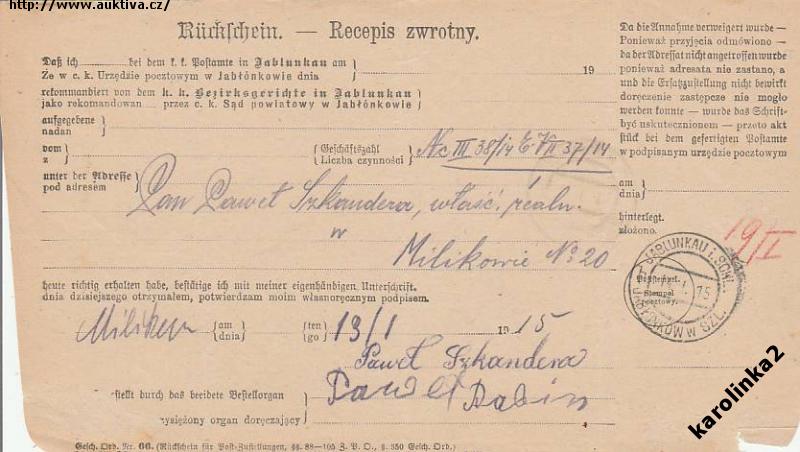 http://www.auktiva.cz/
Rückschein. — Recepis zwrotny.
Daß ich bei dem k. k. Postamte in Jablunkau am
Że w c. k. Urzędzie pocztowym w Jabłónkowie dnia
19
rekommandiert von dem k. k. Bezirksgerichte in Jablunkau
jako rekomandowan przez c. k. Sąd powiatowy w Jabłónkowie
aufgegebene
nadan
vom
z
Geschäftszahl
Liczba czynności
Nc III 38/14 E VII 37/14
unter der Adresse
pod adresem
Pan Paweł Szkandera, właść. realn.
w
Milikowie No 20
heute richtig erhalten habe, bestätige ich mit meiner eigenhändigen Unterschrift.
dnia dzisiejszego otrzymałem, potwierdzam moim własnoręcznym podpisem.
am
dnia
ten
go
13/I
1915
Paweł Szkandera
Paweł
stellt durch das beeidete Bestellorgan
ysiężony organ doręczający
Gesch. Ord. Nr. 66. (Rückschein für Post-Zustellungen, §§. 88—105 Z. P. O., §. 350 Gesch. Ord.)
Da die Annahme verweigert wurde —
Ponieważ przyjęcia odmówiono —
da der Adressat nicht angetroffen wurde
ponieważ adresata nie zastano, a
und die Ersatzzustellung nicht bewirkt
doręczenie zastępcze nie mogło
werden konnte — wurde das Schrift-
być uskutecznionem — przeto akt
stück bei dem gefertigten Postamte
w podpisanym urzędzie pocztowym
am
dnia
hinterlegt.
złożono.
19/I
JABLUNKAU i. SCHL.
JABŁONKÓW W SZL.
Poststempel.
Stempel
pocztowy.
karolinka2